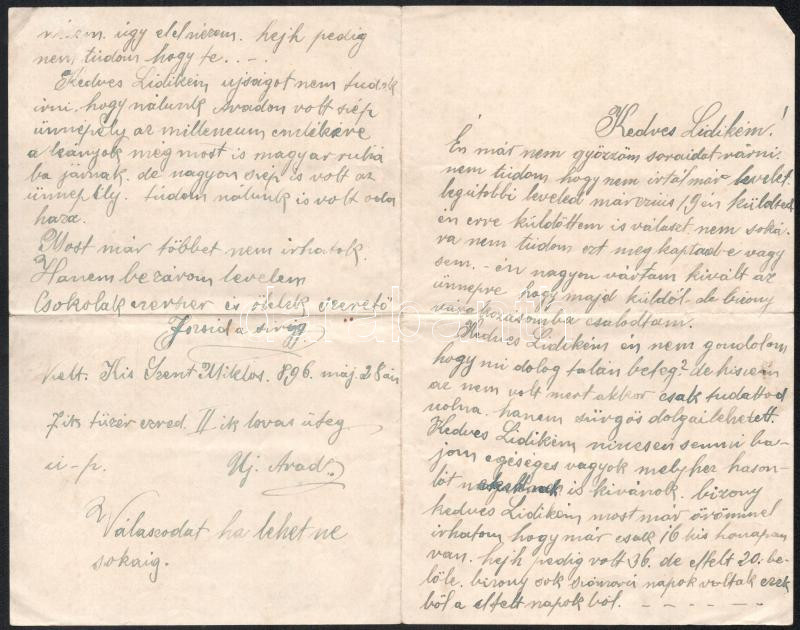 Kedves Lidikém!
Én már nem győzöm soraidat várni.
nem tudom hogy nem irtál már levelet.
legutobbi leveled márczius 19 én küldted
én erre küldöttem is választ nem soká
ra nem tudom ezt meg kaptad e vagy
sem. - én nagyon vártam kivált az
ünnepre hogy majd küldöl. de biony
várakozásomba csalodtam.
Kedves Lidikém én nem gondolom
hogy mi dolog talán beteg? de hiszem
az nem volt mert akkor csak tudattod
volna. hanem sürgős dolgai lehetett.
Kedves Lidikém nincsen semmi ba-
jom egéséges vagyok melyhez hason-
lót is kivánok. bizony
kedves Lidikém most már örömmel
irhatom hogy már csak 16 kis honapan
van. hejh pedig volt 36. de eltelt 20. be-
lőle. bizony sok szomorú napok voltak ezek
ből a eltelt napok ból. - - - - -
ugy elelnézem. hejh pedig
nem tudom hogy te. . - .
Kedves Lidikém ujságot nem tudok
irni. hogy nálunk Aradon volt szép
ünnepély az milleneum emlékére
a leányok még most is magyar ruhá
ba járnak. de nagyon szép is volt az
ünnepély. tudom nálunk is volt oda
haza.
Most már többet nem irhatok.
Hanem bezárom levelem
Csokolak ezerszer és ölelek szerető
Jozsid a sirig
kelt. Kis Szent Miklos. 896. máj. 28 án
7 ik tüzér ezred. II ik lovas üteg
u - p. Uj Arad.
Válaszodat ha lehet ne
sokaig.
darabanth